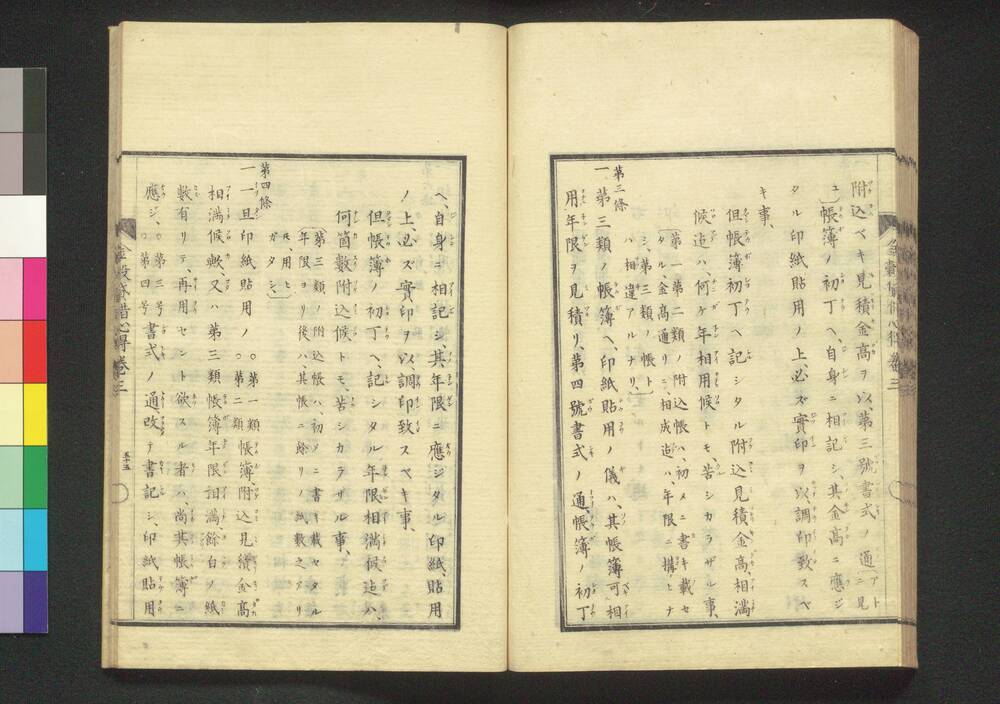 附込ベキ見積金高ヲ以、第三號書式ノ通〔アトニ見
ユ〕帳簿ノ初丁ヘ、自身ニ相記シ、其金高ニ應ジ
タル印紙貼用ノ上、必ズ實印ヲ以、調印致スベ
キ事、
但帳簿初丁ヘ記シタル附込見積金高、相満
候迄ハ、何ケ年相用候トモ、苦シカラザル事、
〔第一第二類ノ附込帳ハ、初メニ書キ載セ
タル、金高通リニ、相成迄ハ年限ニ構ヒナ
シ、第三類ノ帳ト
ハ相違アルナリ、〕
第三條
一 第三類ノ帳簿ヘ、印紙貼用ノ儀ハ、其帳簿可相
用年限ヲ見積リ、第四號書式ノ通、帳簿ノ初丁
ヘ、自身ニ相記シ、其年限ニ應ジタル印紙、貼用
ノ上、必ズ實印ヲ以、調印致スベキ事、
但帳簿ノ初丁ヘ、記シタル年限相満候迄ハ、
何箇數附込候トモ、苦シカラザル事、
〔第三類ノ附込帳ハ、初メニ書キ載セタル
年限ヨリ後ハ、其帳ニ餘リノ紙數之アリ
モ、用ヒ
ガタシ〕
第四條
一 一旦印紙貼用ノ、○第一類○第二類帳簿、附込見積金高
相満候歟、又ハ第三類帳簿年限相満、餘白ノ紙
數有リテ、再用セント欲スル者ハ、尚其帳簿ニ
應ジ、○第三号○第四号書式ノ通、改テ書記シ、印紙貼用
金穀貸借心得 卷三
五十五